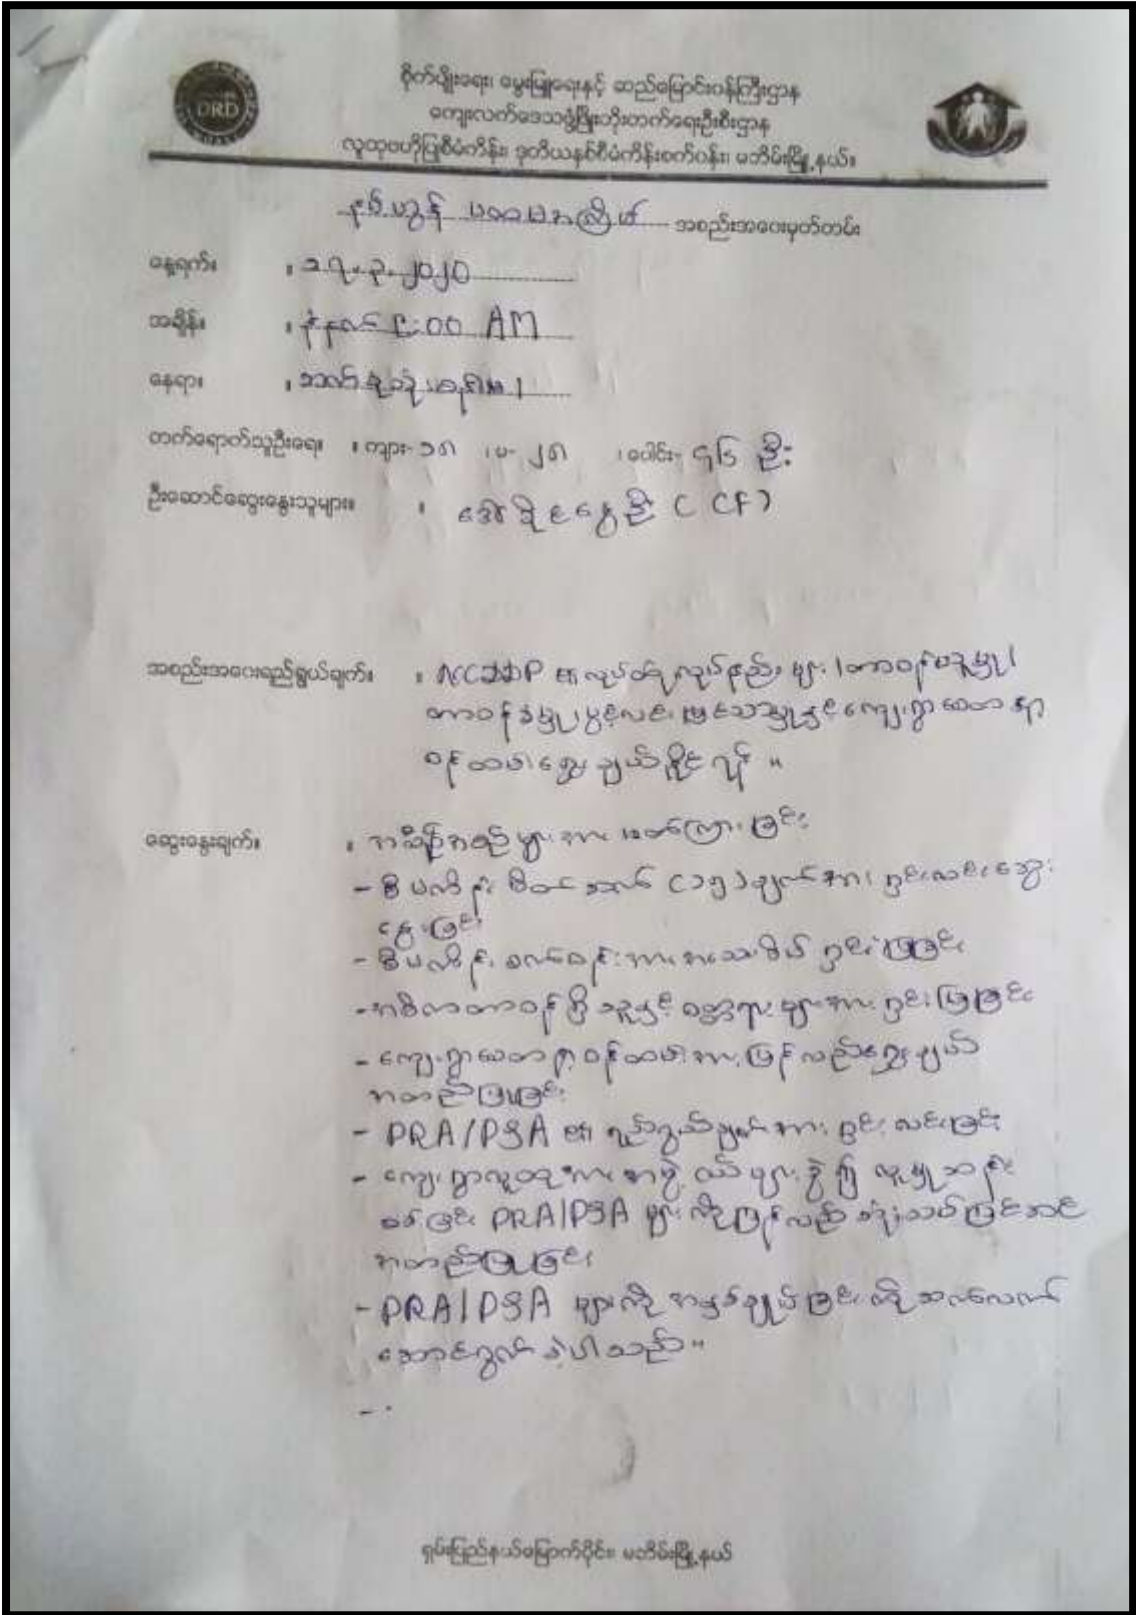 DRD
စိုက်ပျိုးရေး၊ မွေးမြူရေးနှင့် ဆည်မြောင်းဝန်ကြီးဌာန
ကျေးလက်ဒေသဖွံ့ဖြိုးတိုးတက်ရေးဦးစီးဌာန
လူထုဗဟိုပြုစီမံကိန်း၊ ဒုတိယနှစ်စီမံကိန်းစက်ဝန်း၊ မဘိမ်းမြို့နယ်။
ပထမအကြိမ် အစည်းအဝေးမှတ်တမ်း
နေ့ရက်။ ။ ၁၇.၃.၂၀၂၀
အချိန်။ ။ နံနက် ၉:00 AM
နေရာ။ ။
တက်ရောက်သူဦးရေ။ ။ ကျား- ၁၈ ၊ မ- ၂၈ ၊ ပေါင်း- ၄၆ ဦး
ဦးဆောင်ဆွေးနွေးသူများ။ ။ ဒေါ် ဦး (CF)
အစည်းအဝေးရည်ရွယ်ချက်။ ။ NCDDP ၏ လုပ်ထုံးလုပ်နည်းများ၊ တာဝန်ယူမှု၊
တာဝန်ခံမှု၊ ပွင့်လင်းမြင်သာမှုနှင့် ကျေးရွာစေတနာ့
ဝန်ထမ်းရွေးချယ်နိုင်ရန် ။
ဆွေးနွေးချက်။ ။ အစီအစဉ်များအား ဖတ်ကြားခြင်း
- စီမံကိန်း (၁၅) ချက်အား ရှင်းလင်းဆွေး
နွေးခြင်း
- စီမံကိန်း စက်ဝန်းအား အသေးစိတ် ရှင်းပြခြင်း
- အဓိကတာဝန်ရှိသူနှင့် ဝတ္တရားများအား ရှင်းပြခြင်း
- ကျေးရွာစေတနာ့ဝန်ထမ်းအား ပြန်လည်ရွေးချယ်
အတည်ပြုခြင်း
- PRA/PSA ၏ ရည်ရွယ်ချက်အား ရှင်းလင်းခြင်း
- ကျေးရွာလူထုအား အဖွဲ့ငယ်များခွဲ၍ လူမှုဆန်း
စစ်ခြင်း PRA/PSA များကိုပြန်လည် သုံးသပ်ခြင်းအား
အတည်ပြုခြင်း
- PRA/PSA များကို အနှစ်ချုပ်ခြင်းကို ဆက်လက်
ဆောင်ရွက်ခဲ့ပါသည်။
- .
ရှမ်းပြည်နယ်မြောက်ပိုင်း၊ မဘိမ်းမြို့နယ်